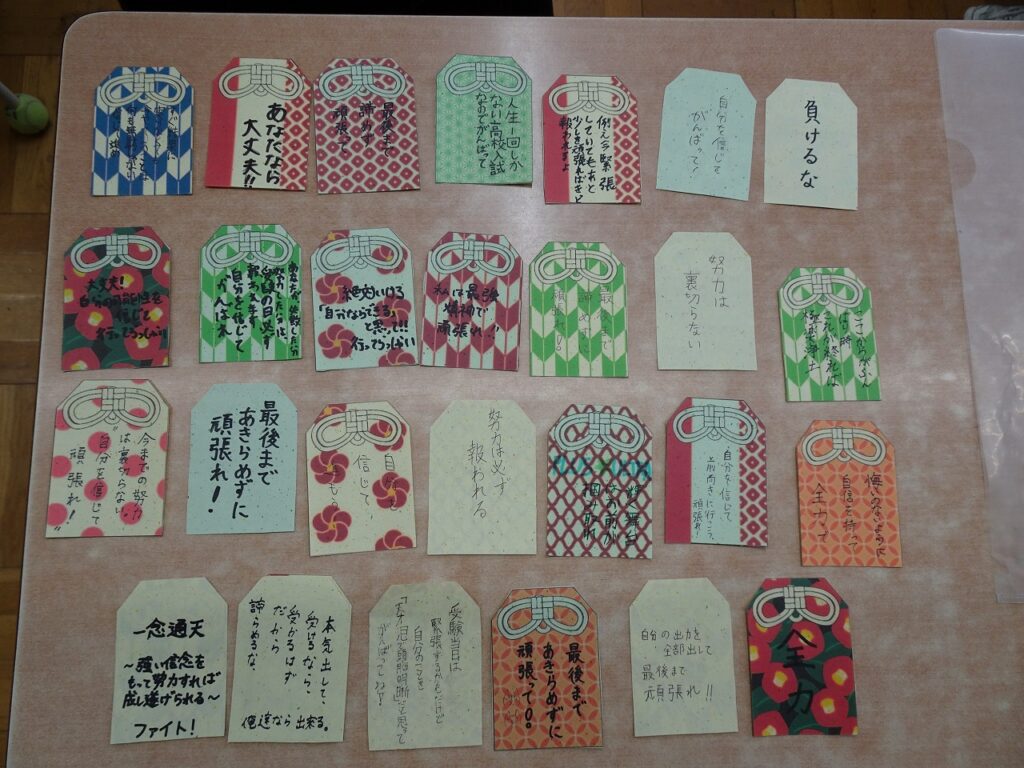 あなたなら
大丈夫!!
最後まで
諦めず
頑張って
人生1回しか
ない高校入試
なのでがんばって
例え今緊張
していてもあと
少し頑張ればきっと
報われますよ
自分を信じて
がんばって!
負けるな
大丈夫!
自分の可能性を
信じて
行ってらっしゃい
自分を信じて
がんばれ
絶対いける
「自分ならできる」
と思って!!
行ってらっしゃい
私は最強
精神で
頑張れ!!
最後まで
諦めずに
頑張れ!!
努力は
裏切らない
今までの努力
は裏切らない
自分を信じて
頑張れ!
最後まで
あきらめずに
頑張れ!
自分を
信じて
努力は必ず
報われる
自分を信じて
前向きに行こう。
頑張れ!
悔いのないように
自信を持って
全力で
一念通天
~強い信念を
もって努力すれば
成し遂げられる~
ファイト!
本気出して、
受けるなら、
受かるはず
だから
諦らめるな。
俺達なら出来る。
受験当日は
緊張するかもだけど
自分のことを
「才色兼備頭脳明晰」と思って
がんばってね!
最後まで
あきらめずに
頑張って!
自分の出力を
全部出して
最後まで
頑張れ!!
全力